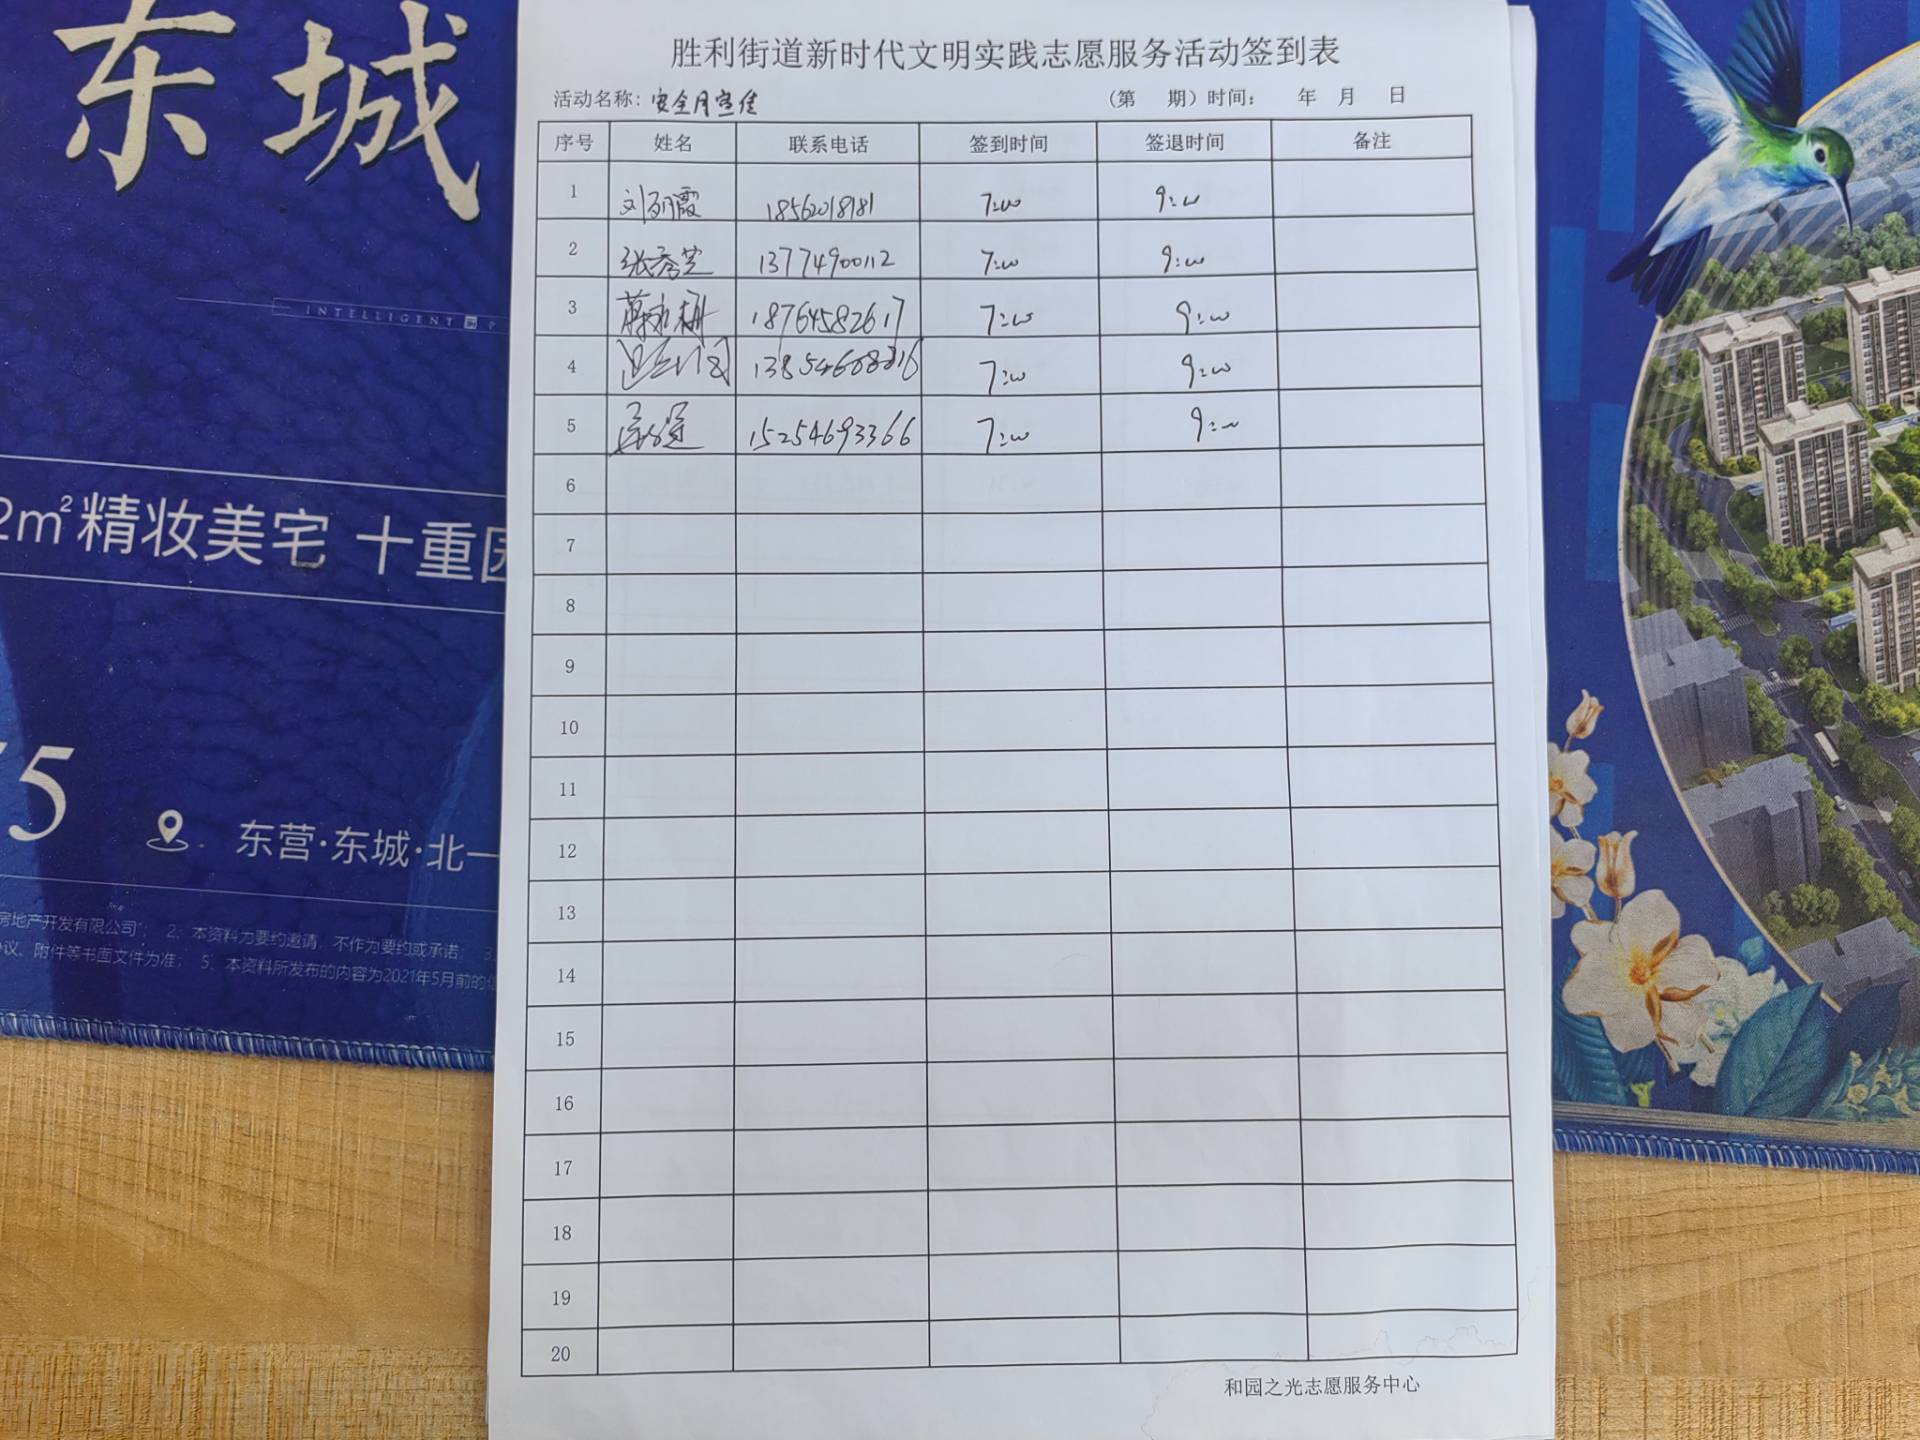 东城
INTELLIGENT
2m²精妆美宅 十重园
5
东营·东城·北一
房地产开发有限公司"; 2、本资料为要约邀请,不作为要约或承诺;
议、附件等书面文件为准; 5、本资料所发布的内容为2021年5月前的
胜利街道新时代文明实践志愿服务活动签到表
活动名称: 安全月宣传 (第 期)时间: 年 月 日
序号 姓名 联系电话 签到时间 签退时间 备注
1 刘丽霞 18562018181 7:00 9:00
2 张秀芝 13774900112 7:00 9:00
3 18764582617 7:00 9:00
4 7:00 9:00
5 15254693366 7:00 9:00
6
7
8
9
10
11
12
13
14
15
16
17
18
19
20
和园之光志愿服务中心